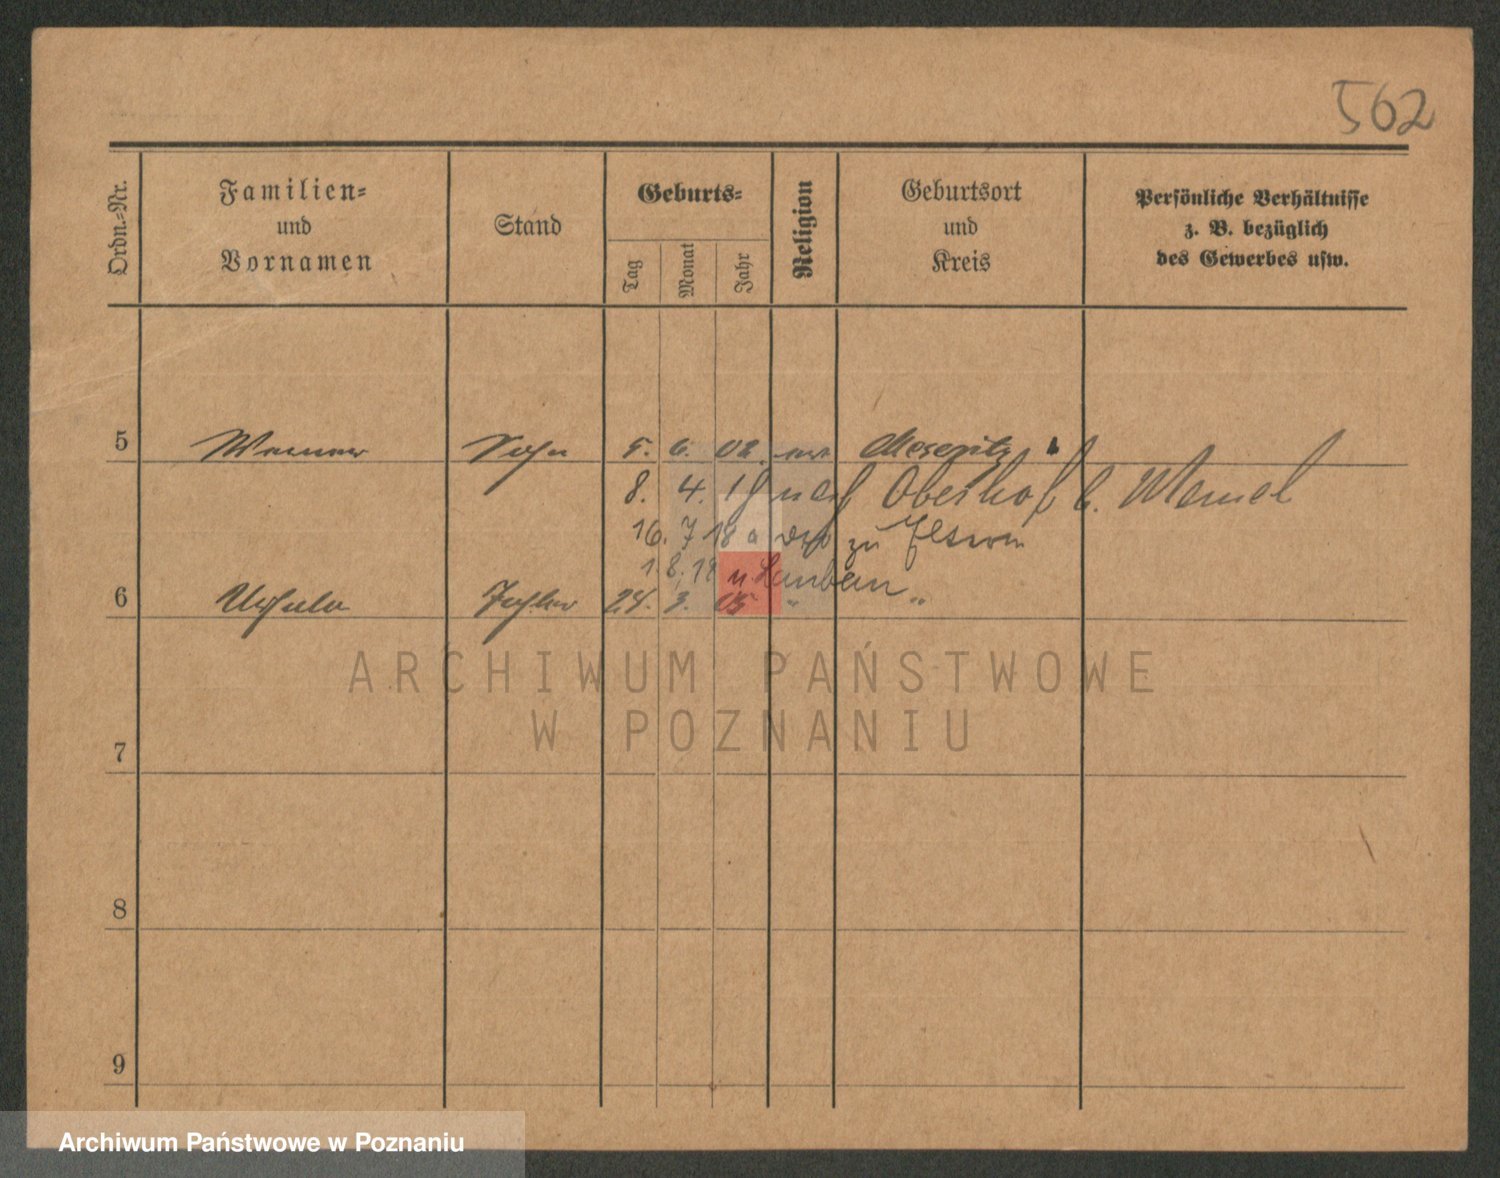 562
Ordn.=Nr.
Familien=
und
Vornamen
Stand
Geburts=
Tag
Monat
Jahr
Religion
Geburtsort
und
Kreis
Persönliche Verhältnisse
z. B. bezüglich
des Gewerbes usw.
5 Werner Sohn 5. 6. 02. ev Meseritz
8. 4. 18 nach Oberhof b. Memel
16. 7 18 zu Eltern
1 8. 18 n. Lauban
6 Ursula Tochter 24. 3. 05 " "
ARCHIWUM PAŃSTWOWE
W POZNANIU
7
8
9
Archiwum Państwowe w Poznaniu